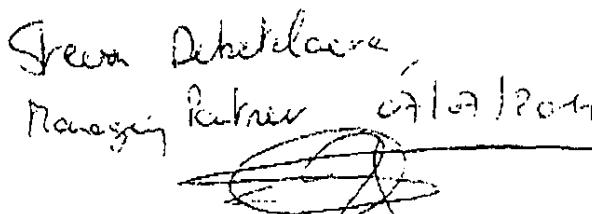 Steven Debetelaere,
Managing Partner 07/07/2014